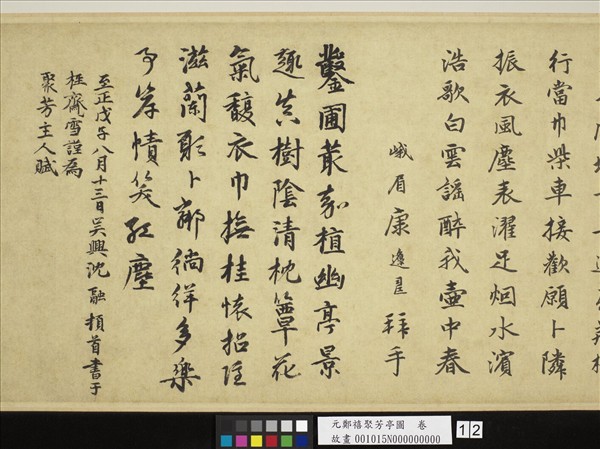 行當巾柴車接歡願卜隣
振衣風塵表濯足烟水濱
浩歌白雲謠醉我壺中春
峨眉康 拜手
鑿圃叢 植幽亭景
趣 樹陰清枕簟花
氣馥衣巾撫桂懷招隱
滋蘭 卜鄰徜徉多樂
事岸幘笑紅塵
至正戊子八月十三日吳興沈融頓首書于
極齋雪謹為
聚芳主人賦
元鄭禧聚芳亭圖 卷
故畫 001015N000000000
12